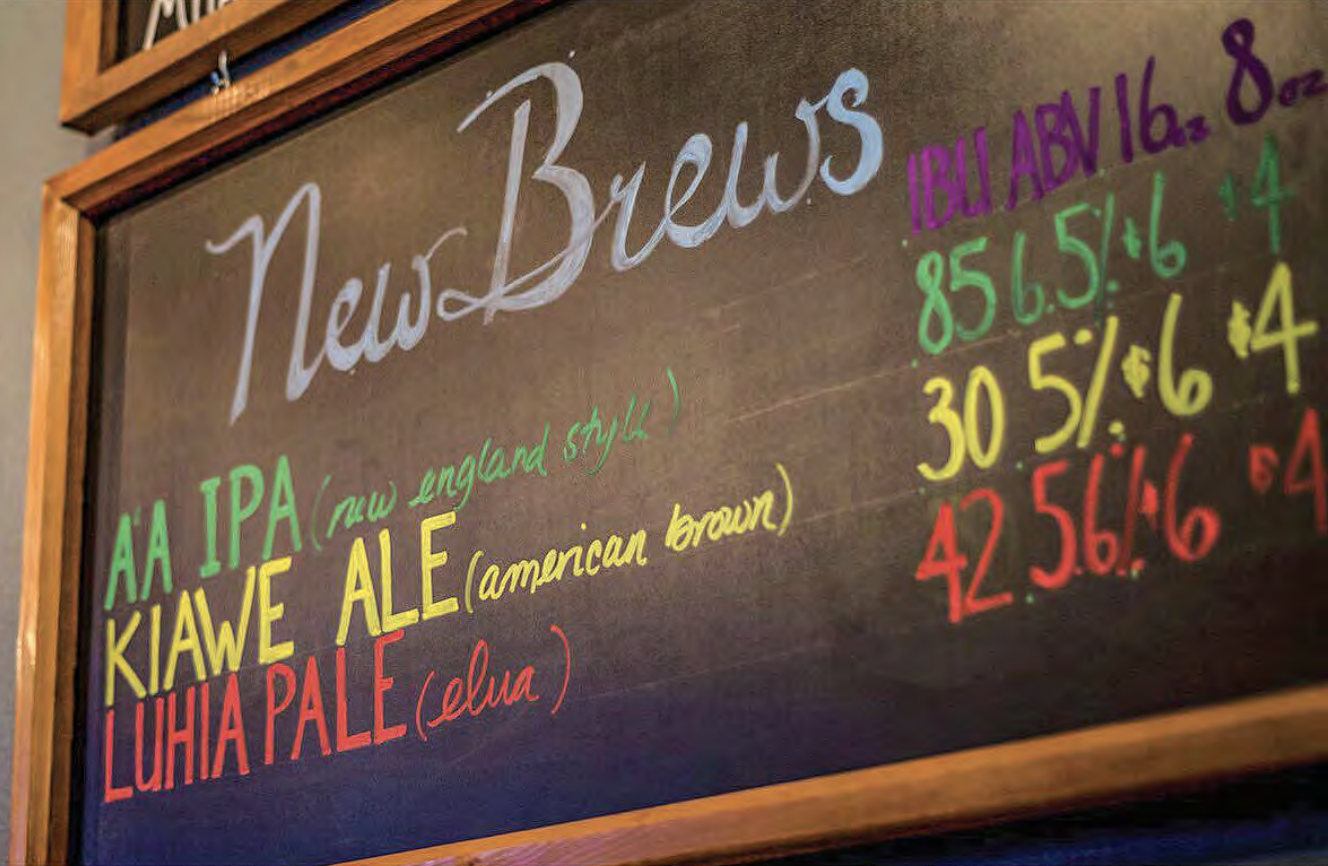 New Brews IBU ABV 16oz 8oz
A'A IPA (new england style) 85 6.5% $6 $4
KIAWE ALE (american brown) 30 5% $6 $4
LUHIA PALE (elua) 42 5.6% $6 $4